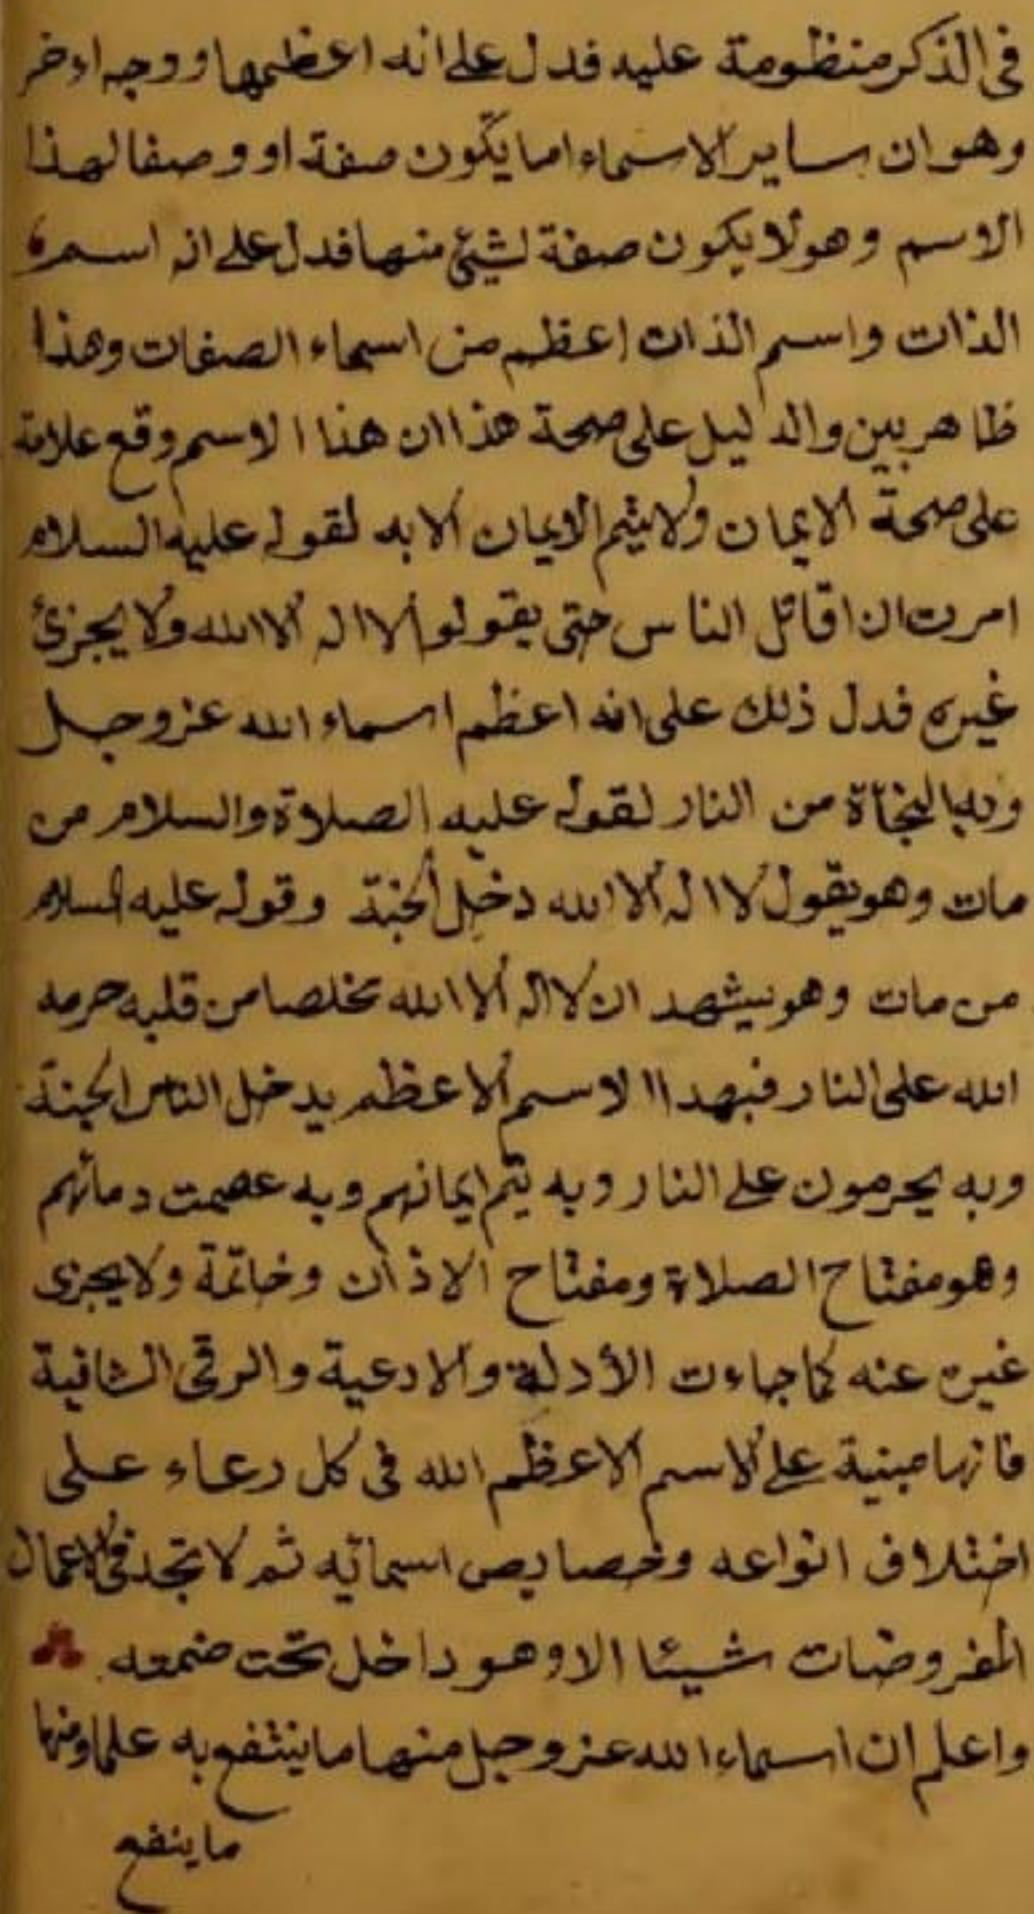 في الذكر منظومة عليه فدل على انه اعظمها ووجه اخر
وهو ان ساير الاسماء اما يكون صفة او وصفا لهذا
الاسم وهو لا يكون صفة لشيئ منها فدل على انه اسم
الذات واسم الذات اعظم من اسماء الصفات وهذا
ظاهر بين والدليل على صحة هذا ان هذا الاسم وقع علامة
على صحة الايمان ولا يتم الايمان الا به لقوله عليه السلام
امرت ان اقاتل الناس حتى يقولوا لا اله الا الله ولا يجزئ
غيره فدل ذلك على انه اعظم اسماء الله عز وجل
وبها النجاة من النار لقوله عليه الصلاة والسلام من
مات وهو يقول لا اله الا الله دخل الجنة وقوله عليه السلام
من مات وهو يشهد ان لا اله الا الله مخلصا من قلبه حرمه
الله على النار فبهدا الاسم الاعظم يدخل الناس الجنة
وبه يحرمون على النار وبه يتم ايمانهم وبه عصمت دمائهم
وهو مفتاح الصلاة ومفتاح الاذان وخاتمة ولا يجزى
غيره عنه كما جاءت الأدلة والادعية والرقى الشافية
فانها مبنية على الاسم الاعظم الله في كل دعاء على
اختلاف انواعه وخصايص اسمائه ثم لا تجد في الاعمال
المفروضات شيئا الا وهو داخل تحت ضمنه
واعلم ان اسماء الله عز وجل منها ما ينتفع به علما ومنها
ما ينفع